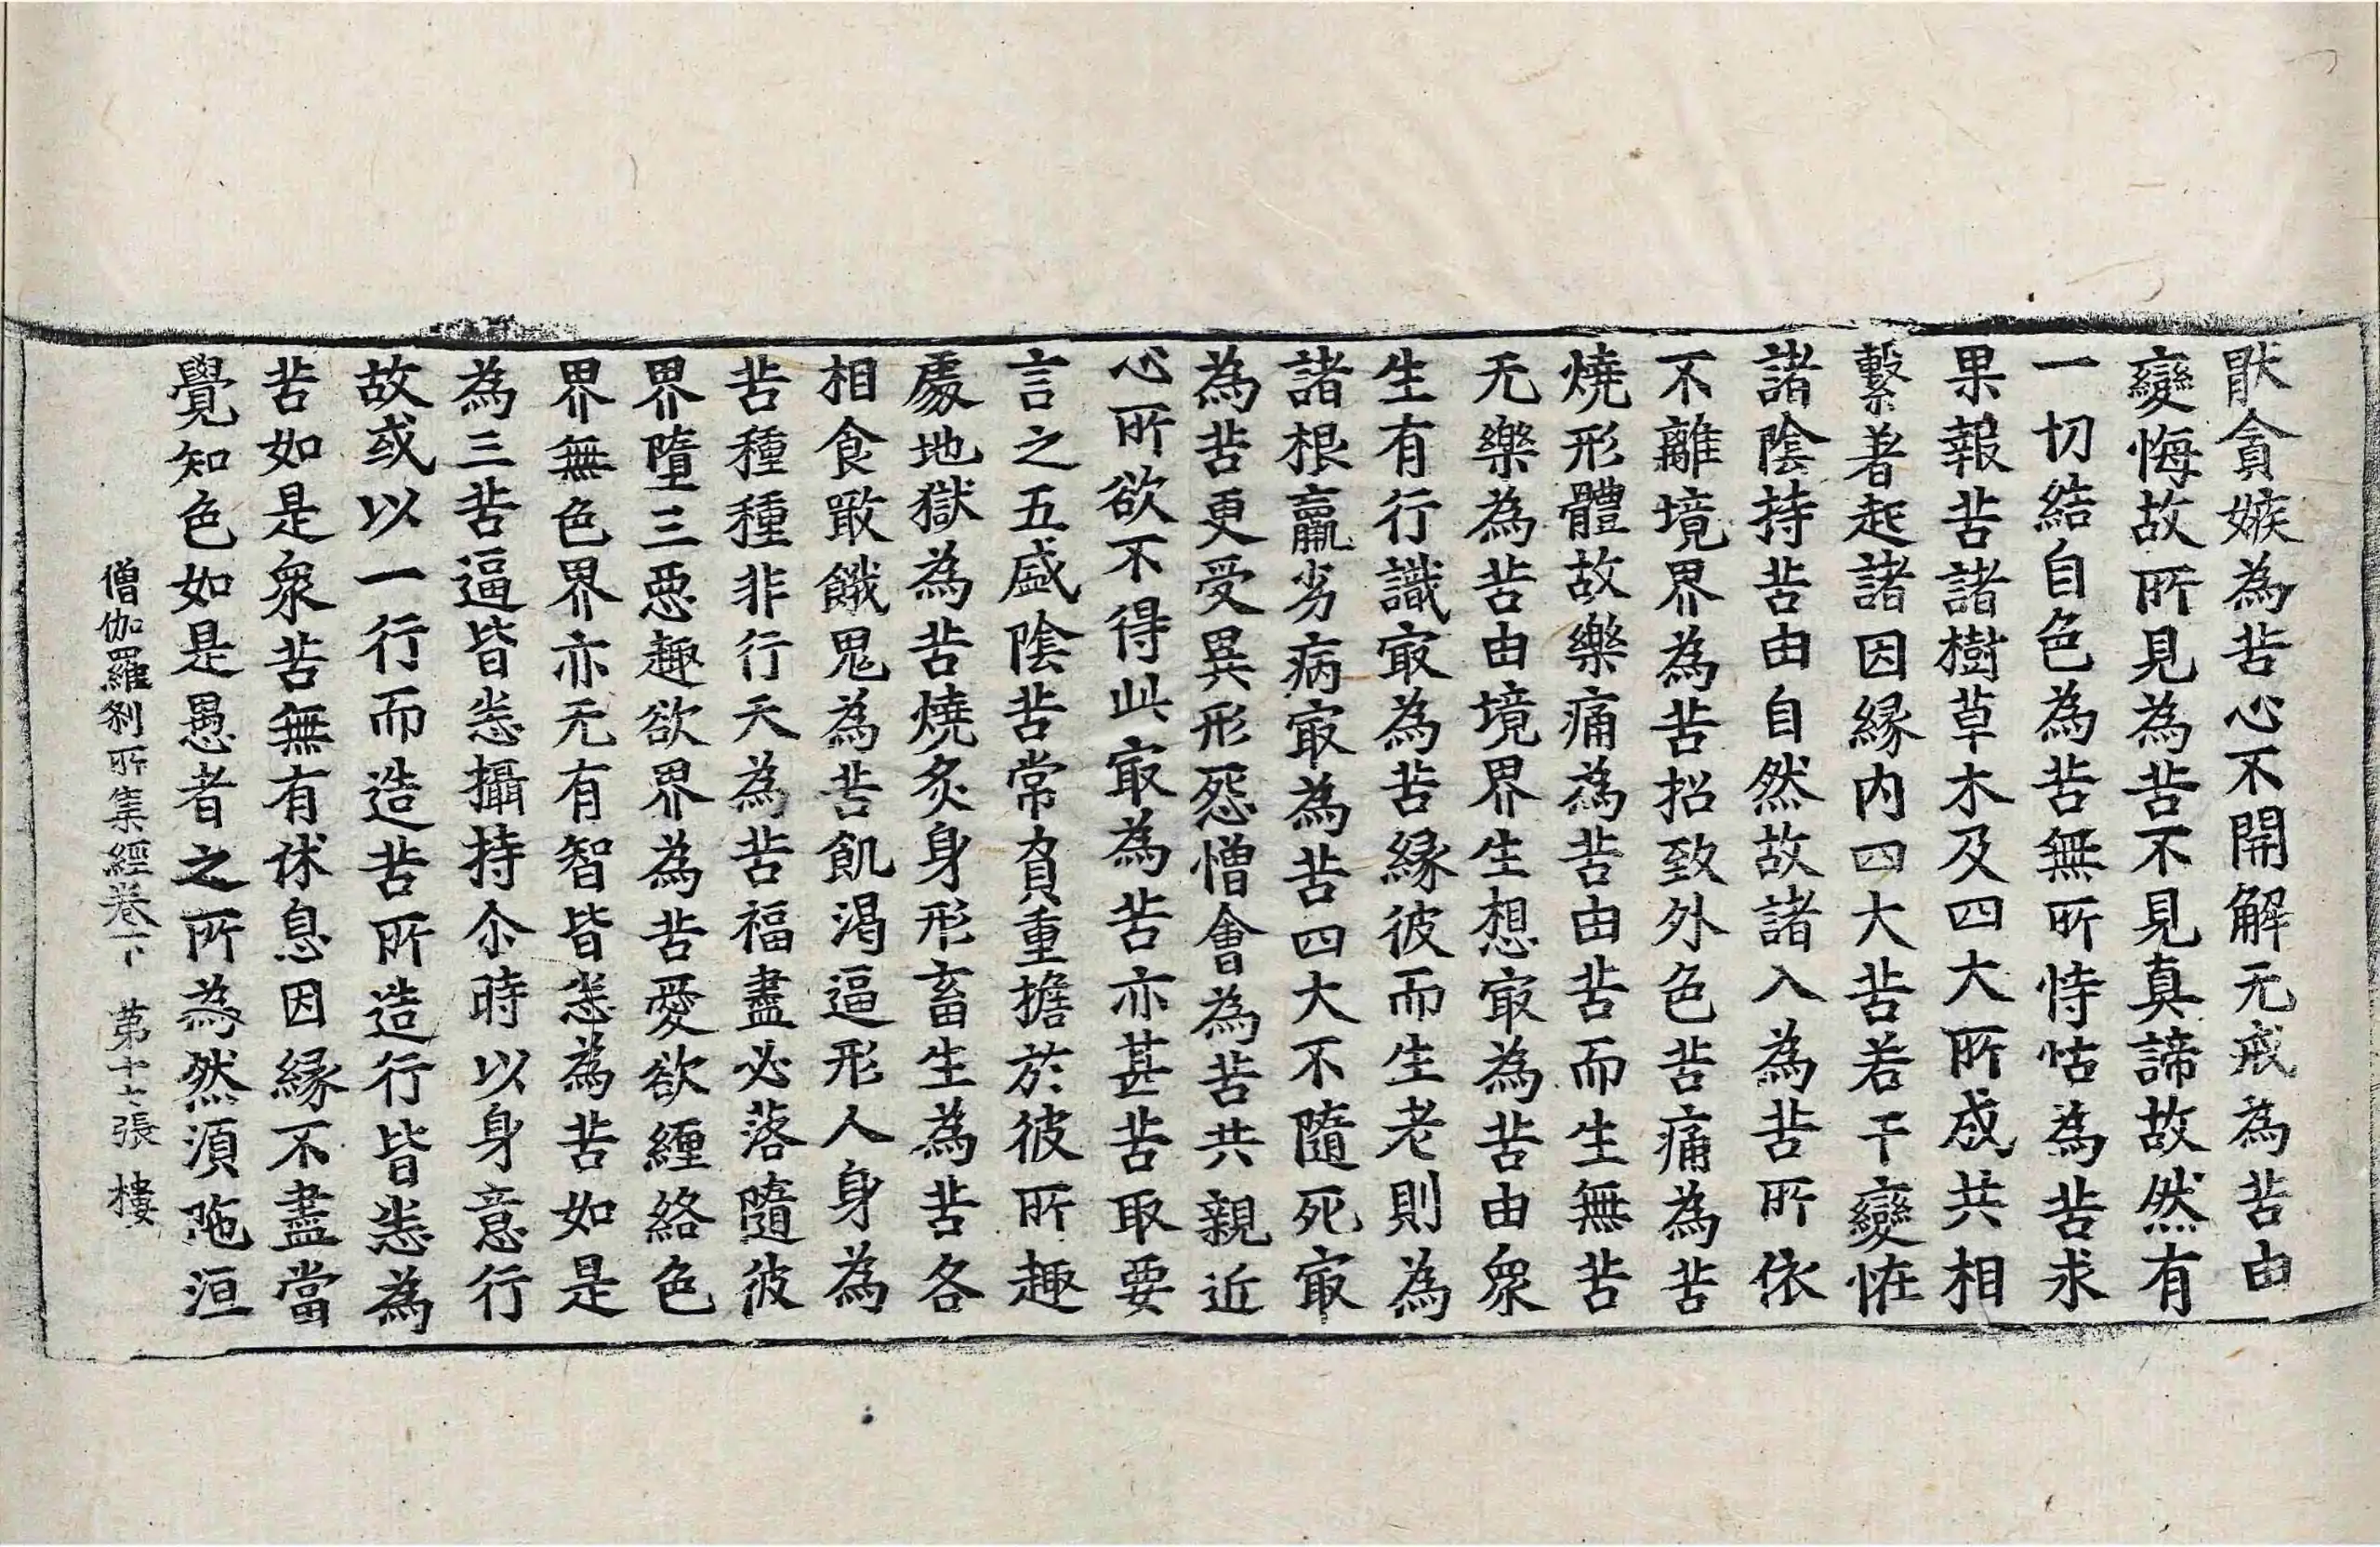 猒貪嫉為苦心不開解无戒為苦由
變悔故所見為苦不見真諦故然有
一切結自色為苦無所恃怙為苦求
果報苦諸樹草木及四大所成共相
繫著起諸因緣内四大苦若干變恠
諸陰持苦由自然故諸入為苦所依
不離境界為苦招致外色苦痛為苦
燒形體故樂痛為苦由苦而生無苦
无樂為苦由境界生想㝡為苦由衆
生有行識㝡為苦緣彼而生老則為
諸根羸劣病㝡為苦四大不隨死㝡
為苦更受異形怨憎會為苦共親近
心所欲不得此㝡為苦亦甚苦取要
言之五盛陰苦常負重擔於彼所趣
處地獄為苦燒炙身形畜生為苦各
相食噉餓鬼為苦飢渴逼形人身為
苦種種非行天為苦福盡必落隨彼
界墮三惡趣欲界為苦愛欲纏絡色
界無色界亦无有智皆悉為苦如是
為三苦逼皆悉攝持尒時以身意行
故或以一行而造苦所造行皆悉為
苦如是衆苦無有休息因緣不盡當
覺知色如是愚者之所為然湏陁洹
僧伽羅刹所集經卷下 第十七張 樓